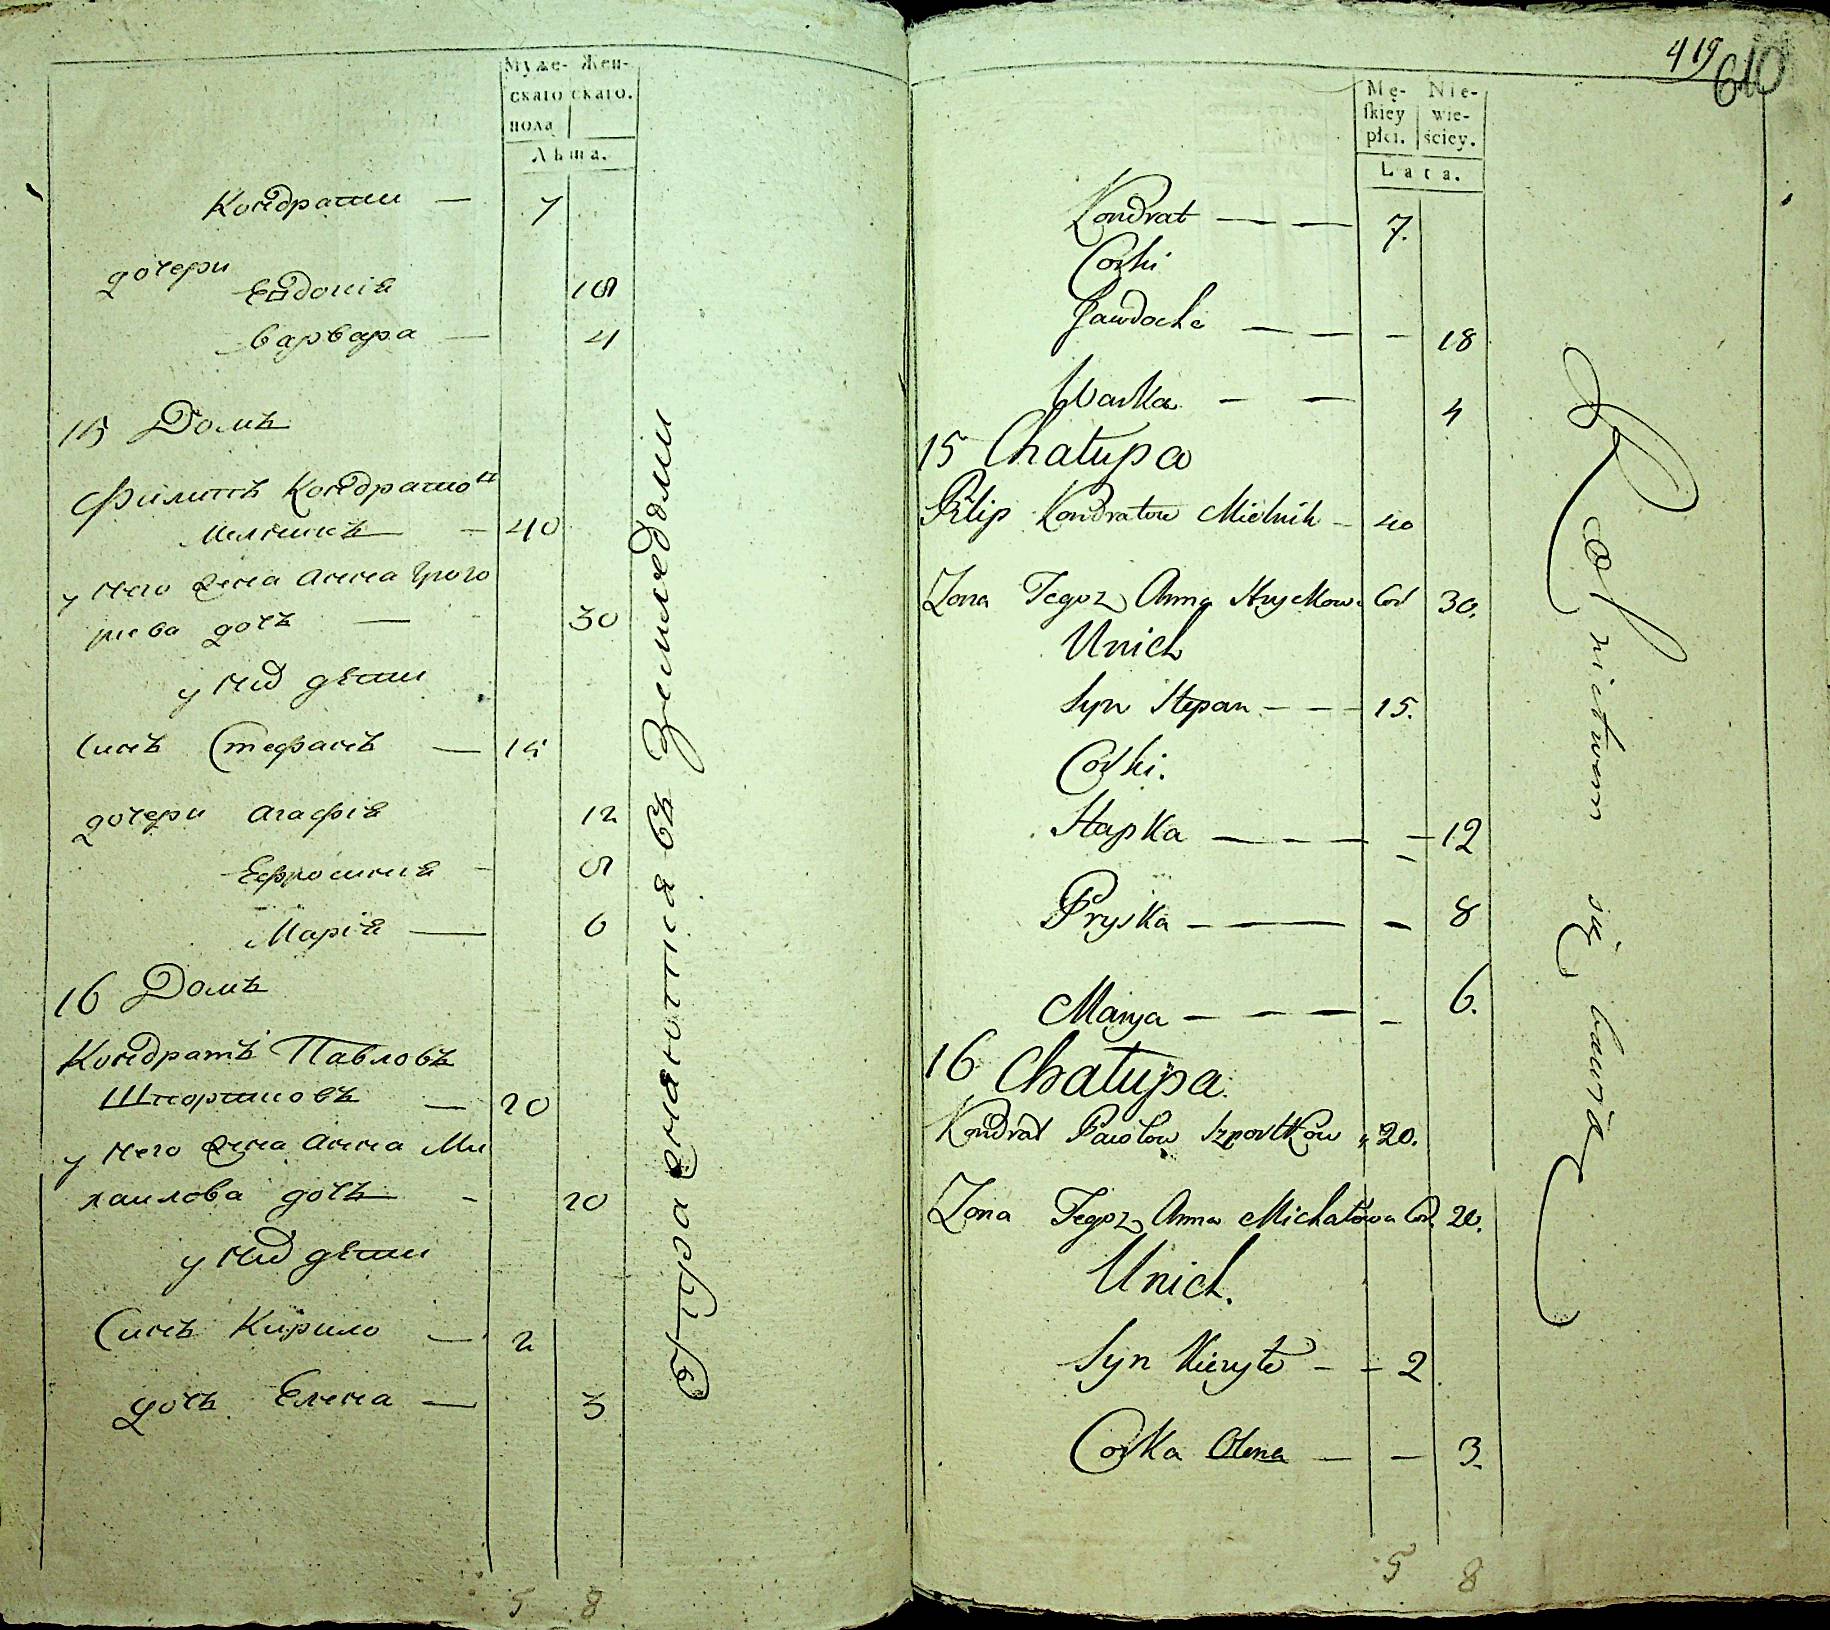 Муже- Жен-
скаго скаго.
пола
Лѣта.
Кондратий — 7
дочери
Евдокія 18
Варвара — 4
15 Домъ
Филипъ Кондратов
Мелникъ — 40
у него жена Анна Григо
риева дочь — 30
у них дѣти
Синъ Стефанъ — 15
дочери Агафія 12
Ефросиния - 8
Марія — 6
16 Домъ
Кондратъ Павловъ
Шпортковъ — 20
у него жена Анна Ми
хаилова дочь - 20
у них дѣти
Синъ Кирило — 2
дочь Елена — 3
5 8
Упражняются въ Земледелии
419
610
Mę- Nie-
skiey wie-
płci. ściey.
Lata.
Kondrat — — 7.
Corki
Jawdocha — — - 18
Warka - — 4
15 Chałupa
Filip Kondratow Mielnik - 40
Zona Tegoz Anna Hryckowa Cor 30.
U nich
Syn Stepan - - - 15.
Corki.
Hapka — — — - 12
Pryska - — — - 8
Marya - — — - 6.
16 Chałupa.
Kondrat Pawłow Szportkow 20.
Zona Tegoz Anna Michałowa Cor. 20.
U nich.
Syn Kiryło - - 2.
Corka Olena — - 3.
5 8
Rolnictwem się bawią